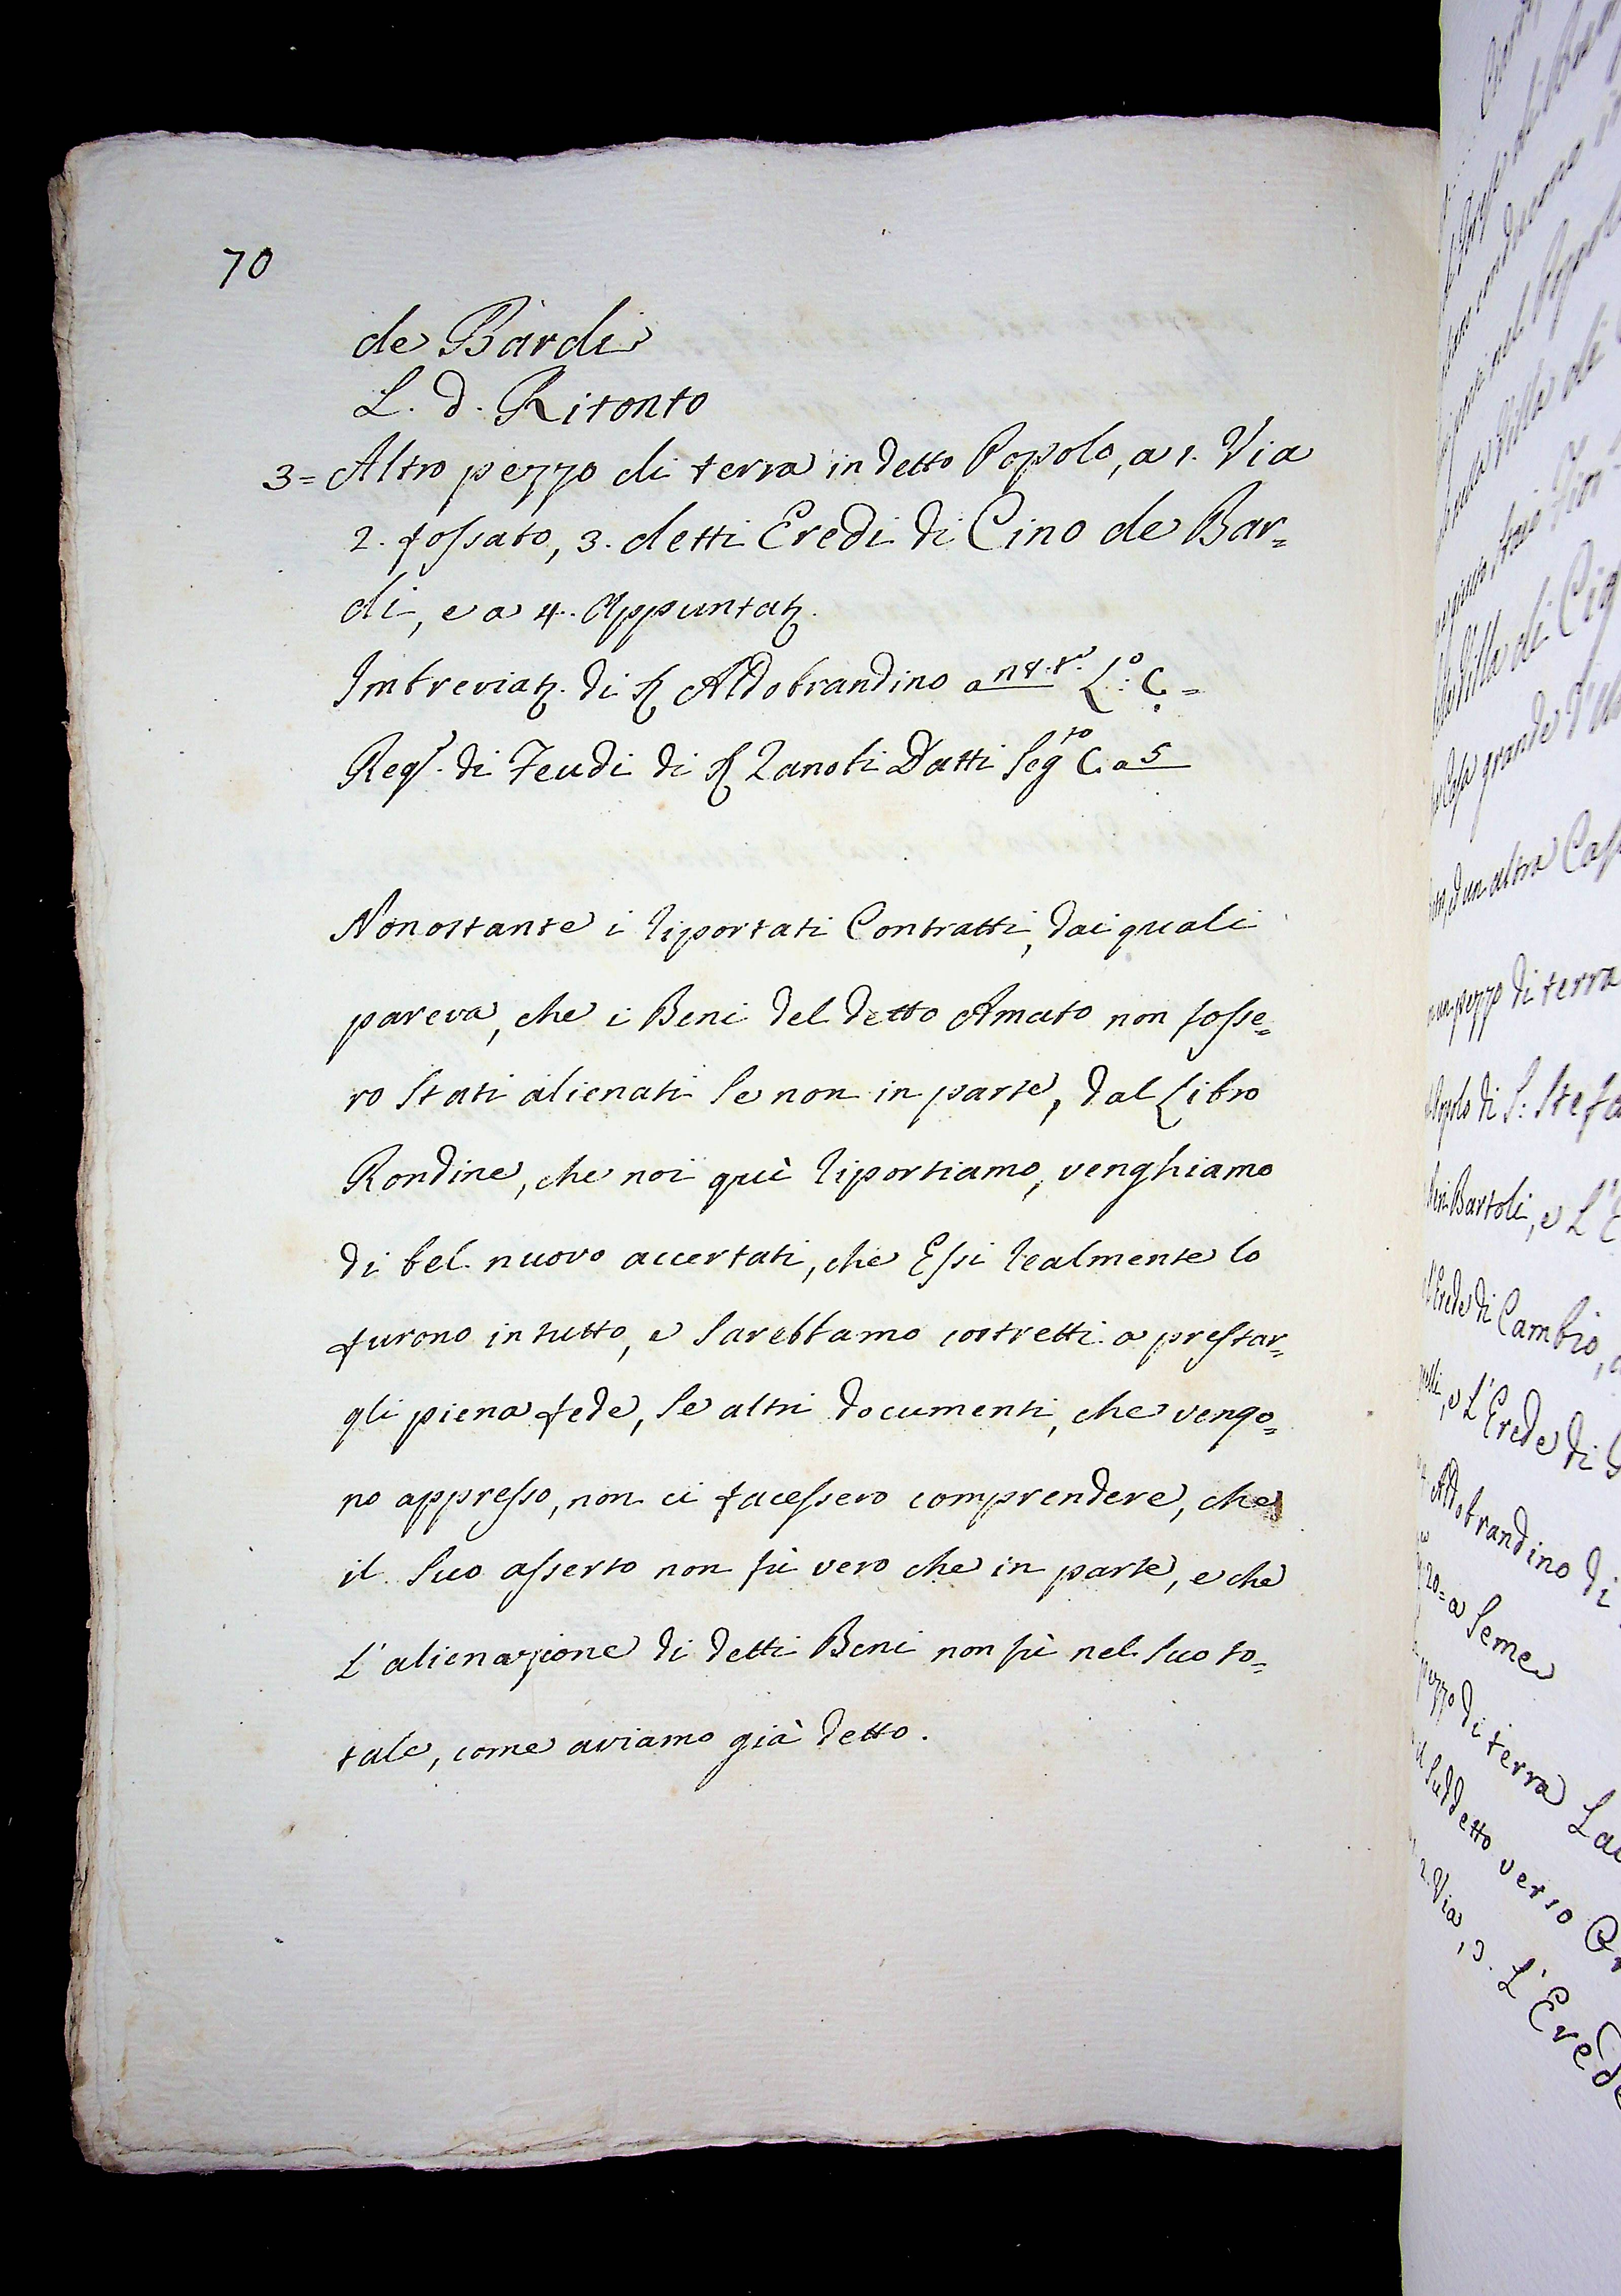 70
de Bardi
L. d. Ritonto
3= Altro pezzo di terra in detto Popolo, a 1. Via
2. fossato, 3. detti Eredi di Cino de Bar=
di, e a 4. Appuntaz.
Imbreviaz. di Aldobrandino a L.º C. =
Regº. di Feudi di Zanobi Datti Segto C. a 5
Nonostante i riportati Contratti, dai quali
pareva, che i Beni del detto Amato non fosse=
ro stati alienati se non in parte, dal Libro
Rondine, che noi quì riportiamo, venghiamo
di bel nuovo accertati, che Essi realmente lo
furono in tutto, e sarebbamo costretti a prestar=
gli piena fede, se altri documenti, che vengo=
no appresso, non ci facessero comprendere, che
il suo asserto non fù vero che in parte, e che
L'alienazione di detti Beni non fù nel suo to=
tale, come aviamo già detto.
Villa di
Casa grande
ed un altra Casa
un pezzo di terra
Popolo di S: Stefa
Bartoli, e L'E
Erede di Cambio,
e L'Erede di
Aldobrandino di
20= a Seme
pezzo di terra La
Suddetto verso
2. Via, 3. L'Erede